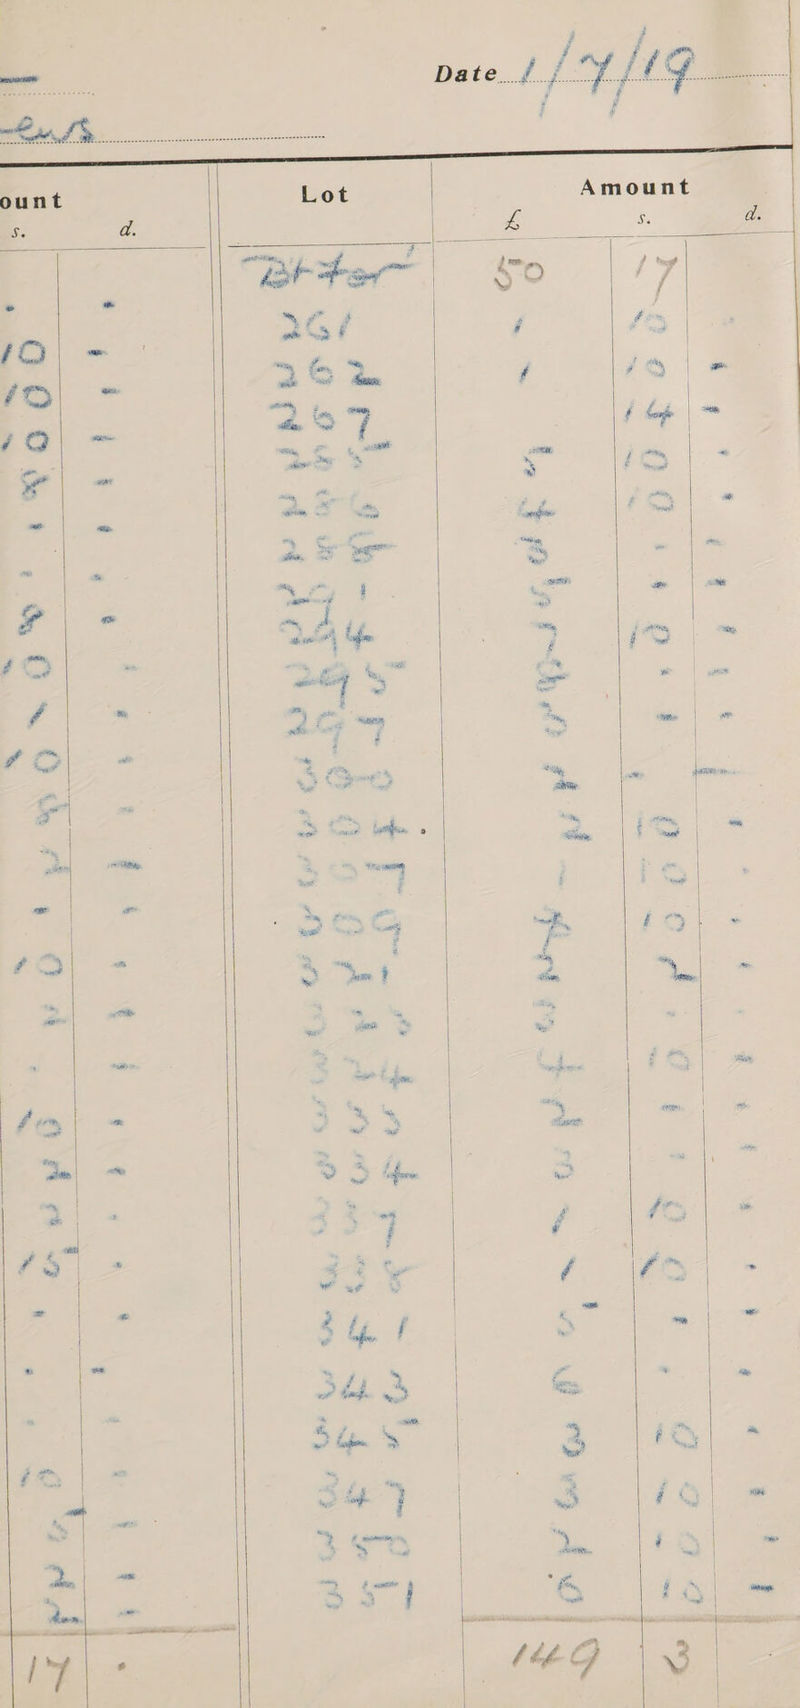 Date 1/7/19
ews
ount Lot Amount
s. d. £ s. d.
- - Bt for 50 17
10 - 261 1 10 -
10 - 262 1 10 -
10 - 267 14 -
8 - 285 5 10 -
- - 286 4 10 -
- - 288 3 - -
8 - 291 5 - -
10 - 294 7 10 -
1 - 295 8 - -
10 - 297 3 - -
8 - 300 2 - -
2 - 304. 2 10 -
- - 307 1 10 -
10 - 309 7 10 -
2 - 321 2 2 -
- - 323 3 - -
10 - 324 4 10 -
2 - 333 2 - -
2 - 334 3 - -
15 - 337 1 10 -
- - 338 1 10 -
- - 341 5 - -
- - 343 6 - -
10 - 345 3 10 -
5 - 347 3 10 -
2 - 350 2 10 -
2 - 351 6 10 -
17 . 149 3